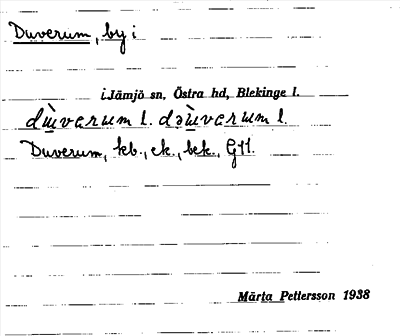 Duverum, by i
i Jämjö sn, Östra hd, Blekinge l.
dùvarum l. dəùvarum l.
Duverum, kb., ek., bek., GJl.
Märta Pettersson 1938